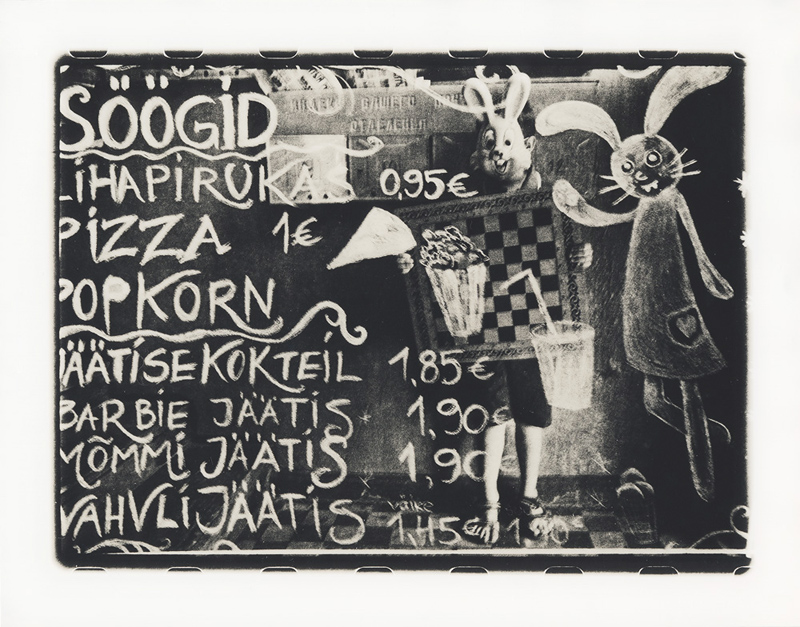 SÖÖGID
LIHAPIRUKAS 0,95€
PIZZA 1€
POPKORN
JÄÄTISEKOKTEIL 1,85€
BARBIE JÄÄTIS 1,90€
MÕMMI JÄÄTIS 1,90
VAHVLIJÄÄTIS väike 1,45€
ИНДЕКС ВАШЕГО
ОТДЕЛЕНИЯ